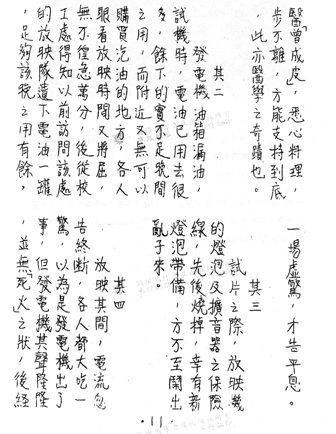 醫曾成皮」,悉心料理,
步不離,方能支持到底
,此亦醫學之奇蹟也。
其二
發電機油箱漏油,
試機時,電油已用去很
多,餘下的實不足晚間
之用,而附近又無可以
購買汽油的地方,各人
眼看放映時間又將屆,
無不徨急萬分,後從校
工處得知以前訪問該處
的放映隊遺下電油一罐
,足夠該晚之用有餘,
一場虛驚,才告平息。
其三
試片之際,放映機
的燈泡及擴音器之保險
線,先後燒掉,幸有新
燈泡帶備,方不至鬧出
亂子來。
其四
放映其間,電流忽
告終斷,各人都大吃一
驚,以為是發電機出了
事,但發電機其聲隆隆
,並無「死火」之狀,後經
·11·